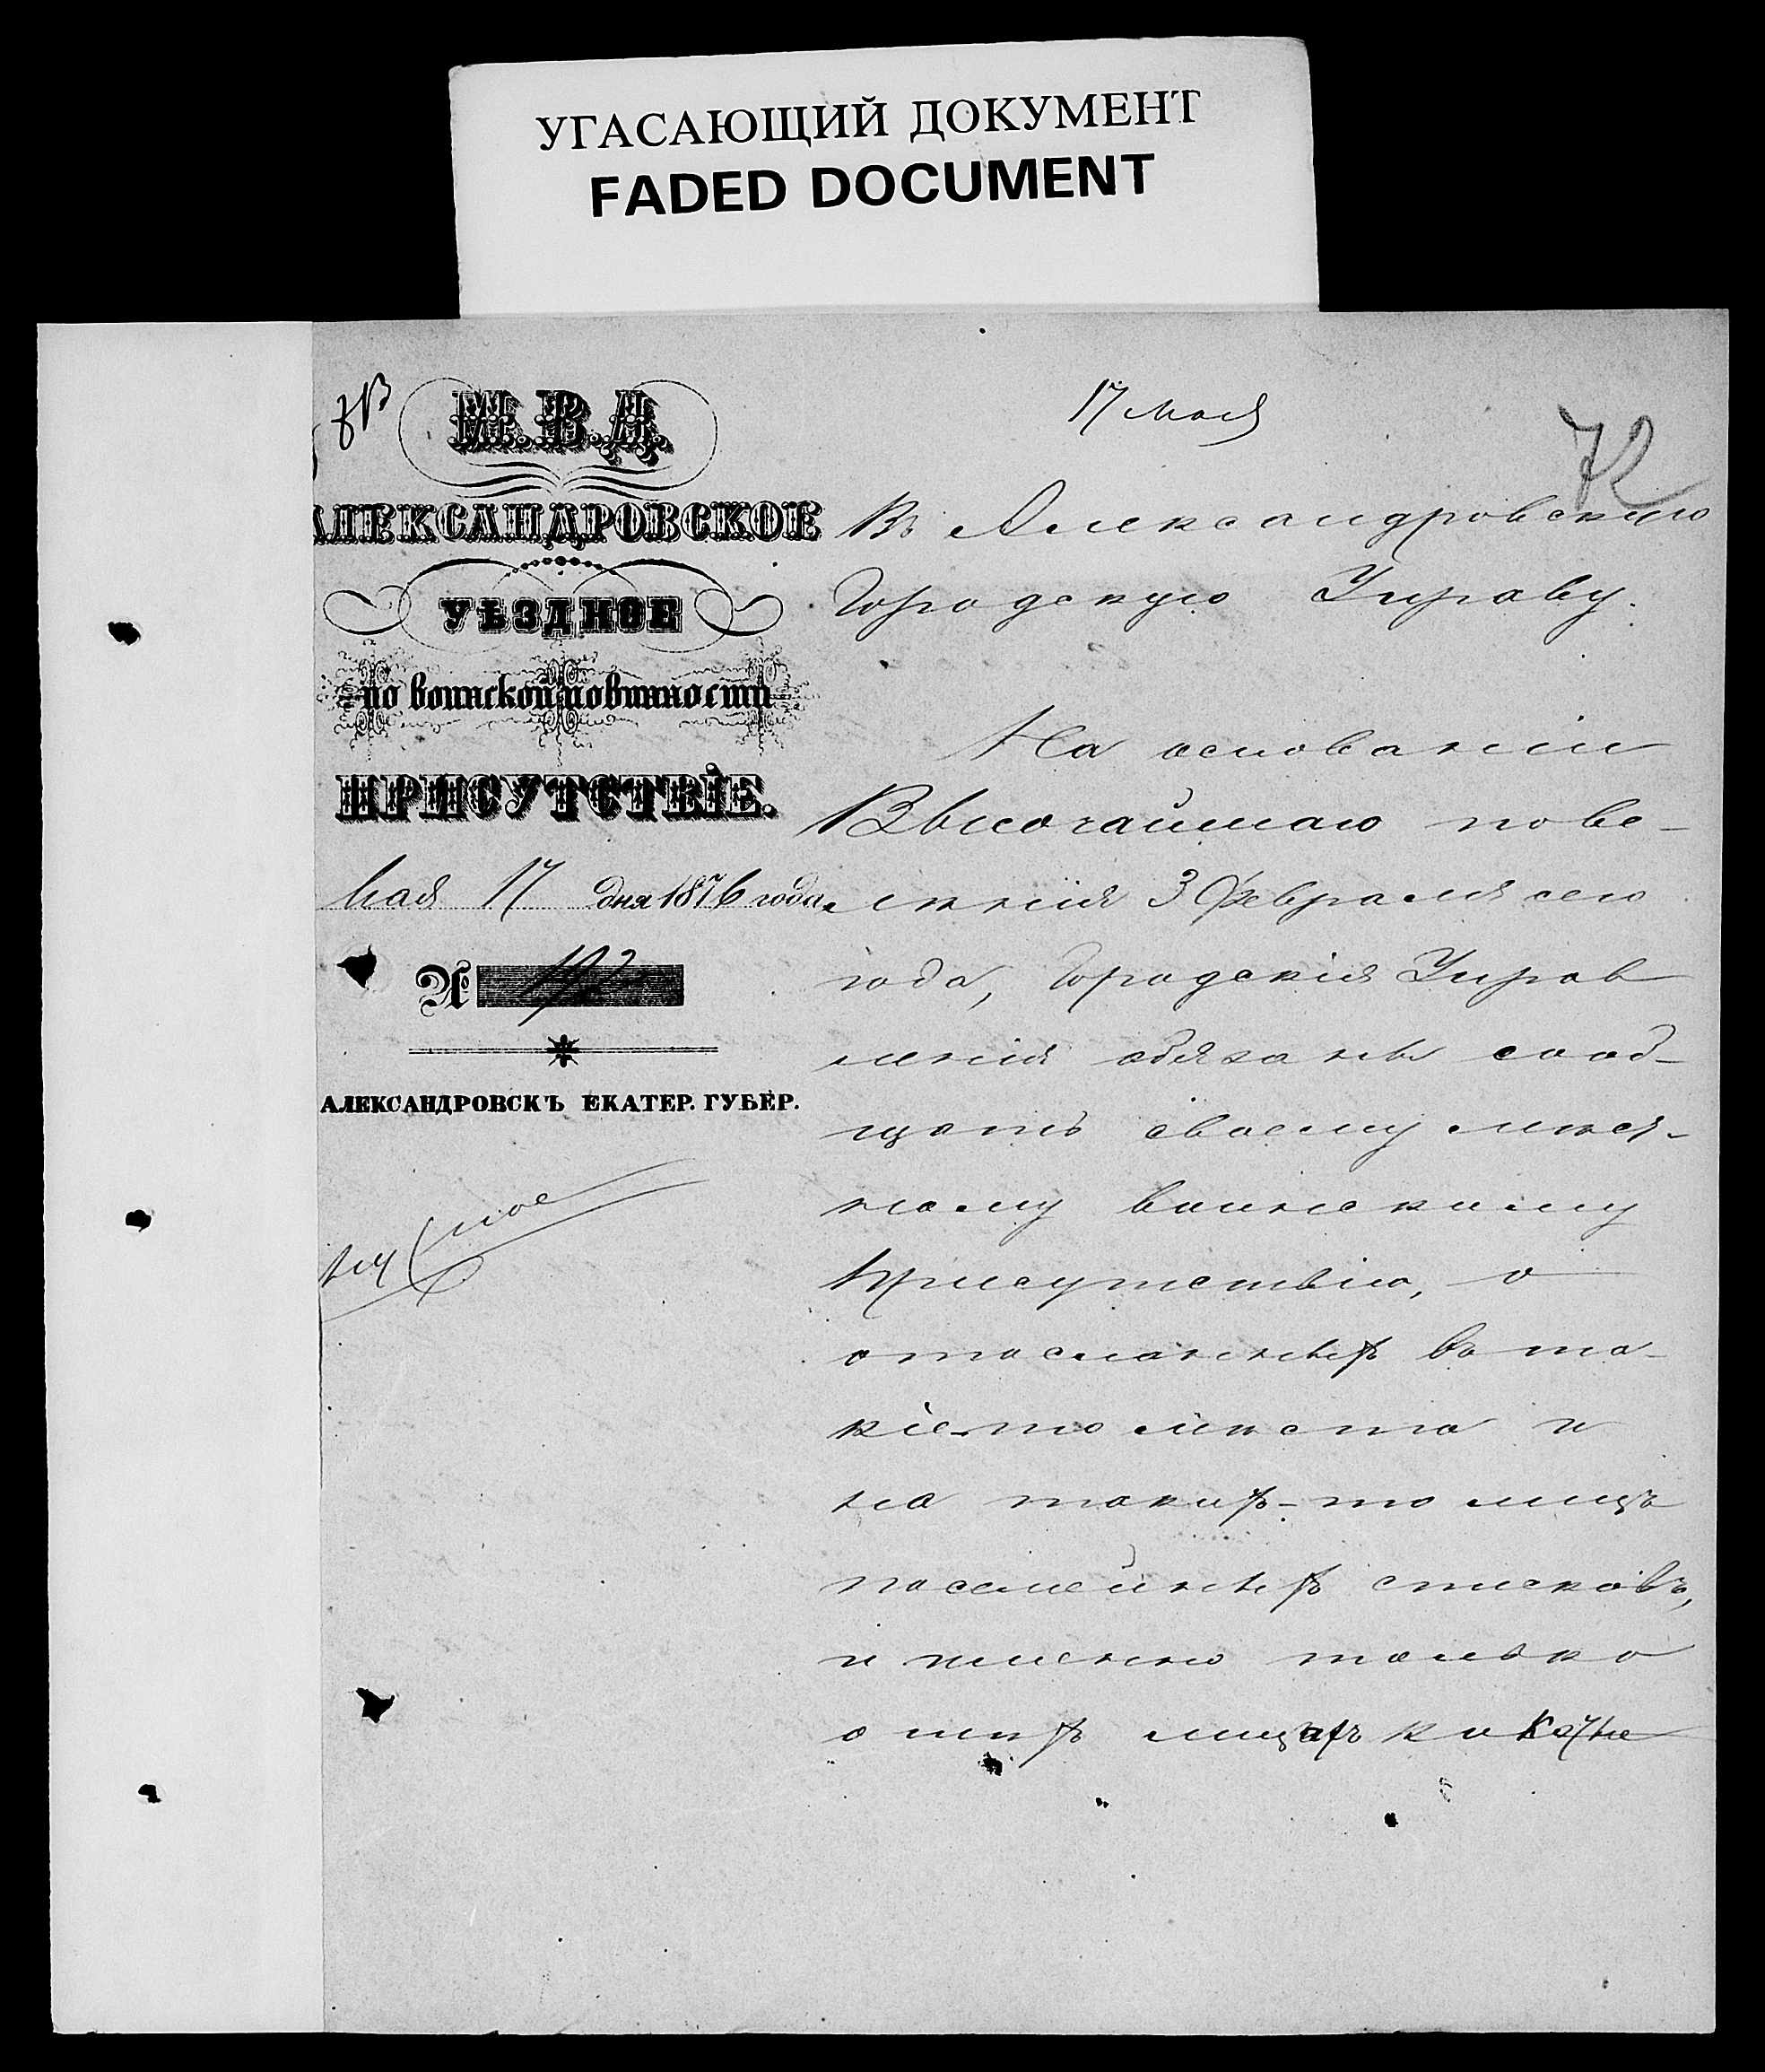 УГАСАЮЩИЙ ДОКУМЕНТ
FADED DOCUMENT
М.В.Д.
АЛЕКСАНДРОВСКОЕ
УѢЗДНОЕ
по воинской повинности
ПРИСУТСТВІЕ.
Мая 17 дня 1876 года.
№ 192
АЛЕКСАНДРОВСКЪ ЕКАТЕР. ГУБЕР.
17 Мая
72
Въ Александровскую
Городскую Управу.
На основаніи
Высочайшаго пове-
ленія 3 Февраля сего
года, Городскія Управ
ленія обязаны сооб-
щать своему мѣст-
ному воинскому
Присутствію, о
отосланныхъ въ та-
кіе-то мѣста и
на такихъ-то лицъ
посемейныхъ списковъ,
и именно только
о тѣхъ лицахъ